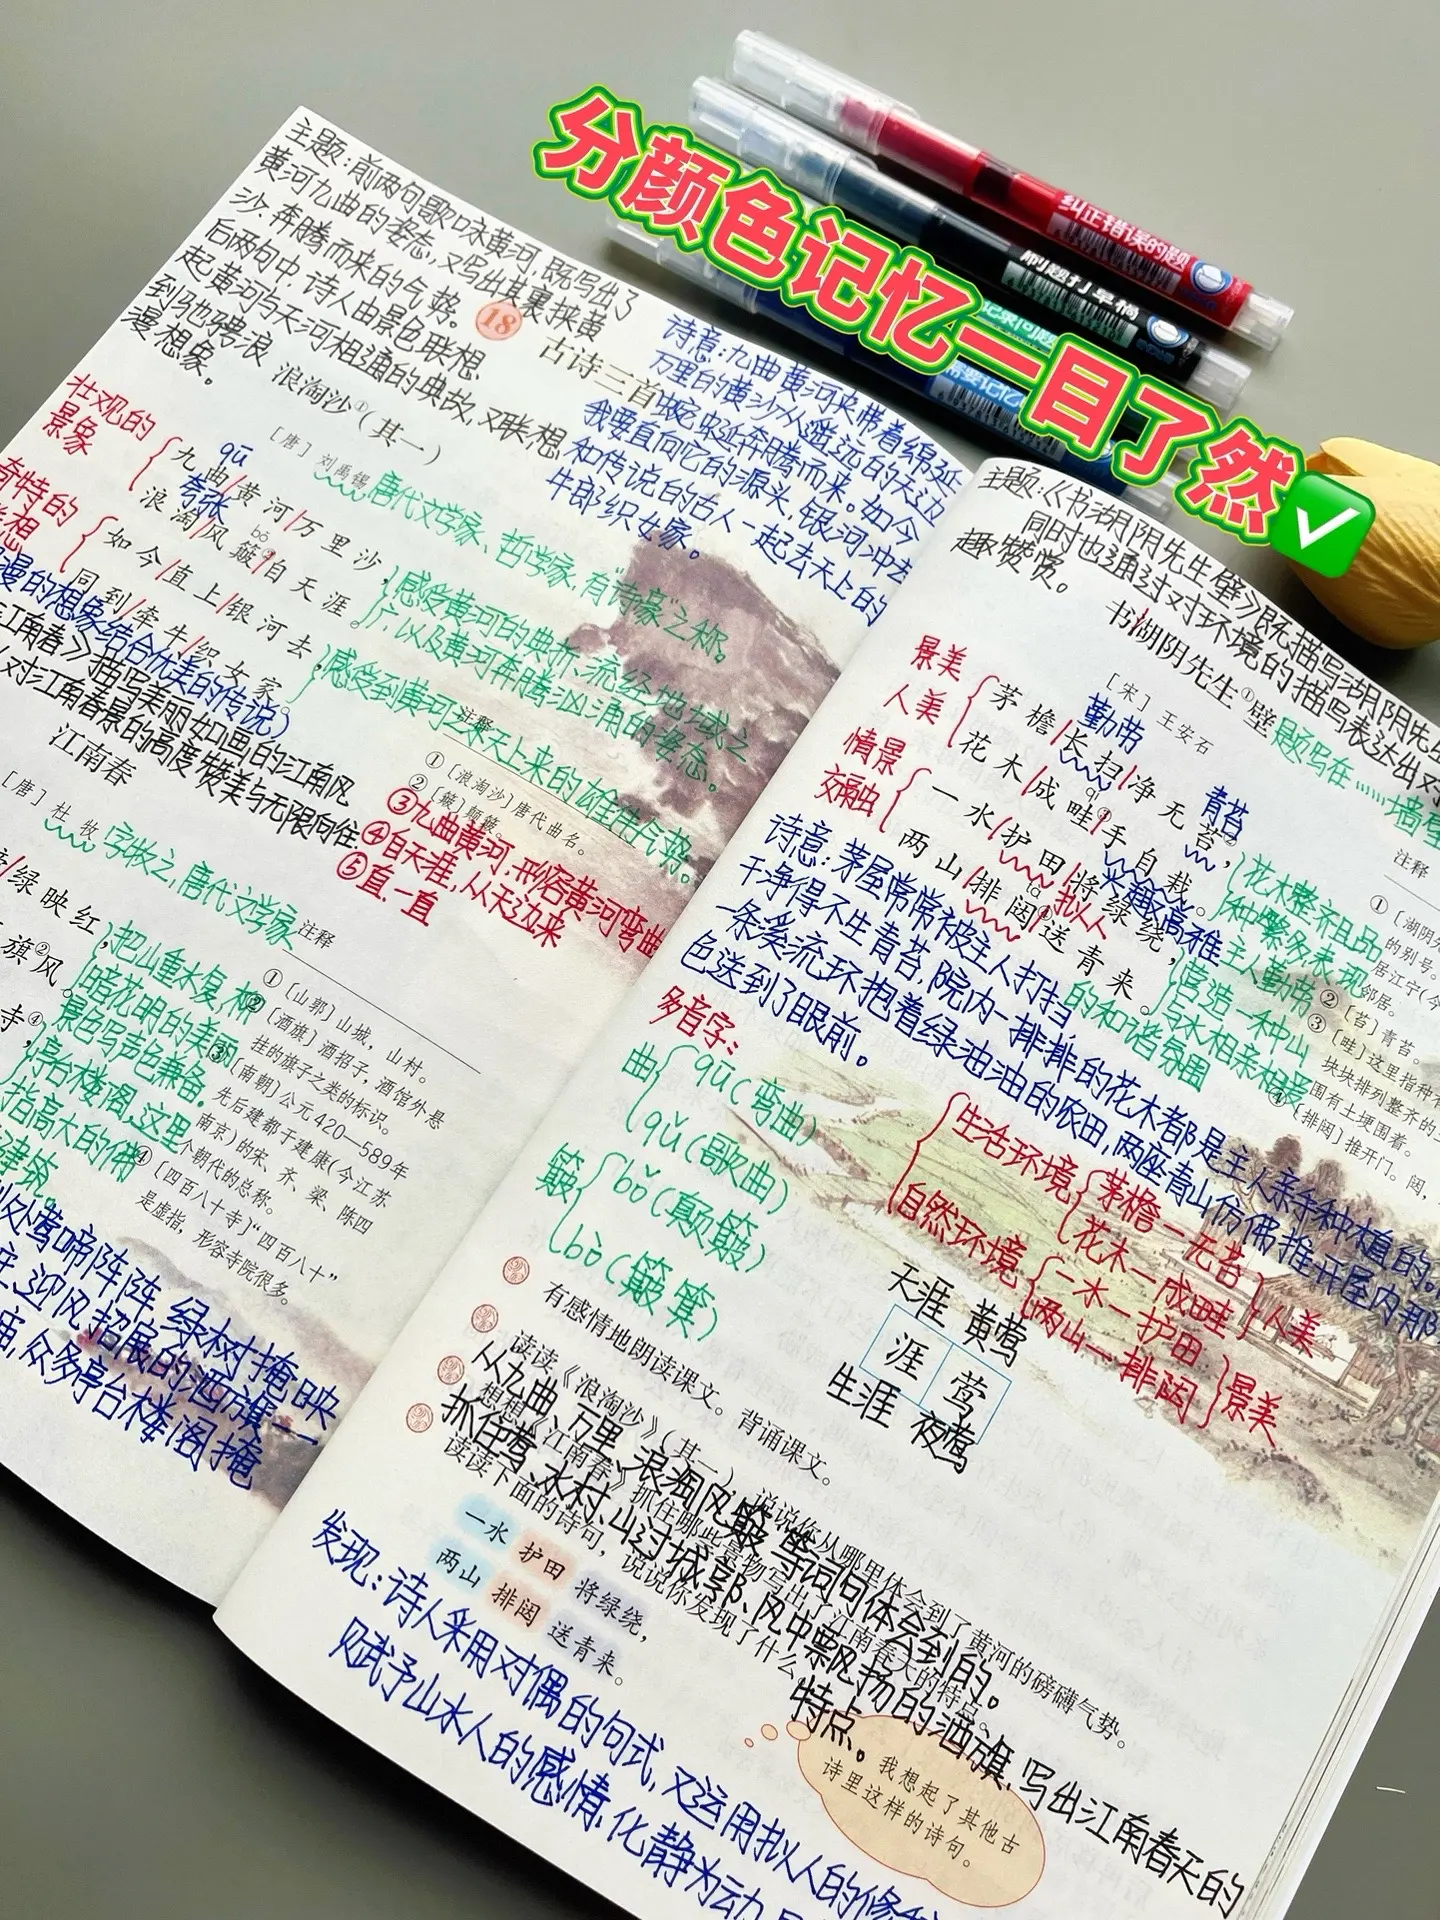 分颜色记忆一目了然
纠正错误的题
刷题打草稿
记录问题
需要记忆
主题:前两句歌咏黄河,既写出了
黄河九曲的姿态,又写出其裹挟黄
沙、奔腾而来的气势。
后两句中,诗人由景色联想
起黄河与天河相通的典故,又联想
到驰骋浪
漫想象。
18
古诗三首
诗意:九曲黄河夹带着绵延
万里的黄沙从遥远的天边
蜿蜒奔腾而来。如今
我要直向忆的源头,银河冲去
和传说的古人一起去天上的
牛郎织女家。
浪淘沙①(其一)
[唐] 刘禹锡
唐代文学家、哲学家,有“诗豪”之称。
壮观的
景象
qū
九曲/黄河/万里沙,
夸张
bǒ
浪淘/风簸②/自天涯。
奇特的
如今/直上/银河去,
同到/牵牛/织女家。
感受黄河的曲折,流经地域之
广,以及黄河奔腾汹涌的姿态。
感受到黄河从天上来的雄伟气势。
漫的想象结合优美的传说)
江南春》描写美丽如画的江南风
对江南春景的高度赞美与无限向往
注释
①[浪淘沙]唐代曲名。
②[簸]颠簸。
③九曲黄河,形容黄河弯曲
④自天涯,从天边来
⑤直,一直
江南春
[唐] 杜牧
字牧之,唐代文学家
绿映红,
旗②风。
寺④,
把山重水复,柳
暗花明的美丽
景色写声色兼备。
亭台楼阁,这里
指高大的佛
建筑。
注释
①[山郭]山城,山村。
②[酒旗]酒招子,酒馆外悬
挂的旗子之类的标识。
③[南朝]公元420—589年
先后建都于建康(今江苏
南京)的宋、齐、梁、陈四
个朝代的总称。
④[四百八十寺]“四百八十”
是虚指,形容寺院很多。
处莺啼阵阵,绿树掩映
迎风招展的酒旗一一
庙,众多亭台楼阁掩
主题:《书湖阴先生壁》既描写湖阴先生
同时也通过对环境的描写表达出对
趣赞赏。
书/湖阴先生①壁
题写在……墙壁
[宋] 王安石
景美
人美
勤劳
青苔
茅檐/长扫/净无苔②,
花木/成畦③/手自栽。
qí
情景
交融
兴趣高雅
拟人
一水/护田/将绿绕,
tà
两山/排闼④/送青来。
花木整齐且品
种繁多,表现
主人勤劳
营造一种中山
与水相亲相爱
的和谐氛围
诗意:茅屋常常被主人打扫,
干净得不生青苔,院内一排排的花木都是主人亲手种植的。
一条溪流环抱着绿油油的农田,两座青山仿佛推开屋内那
色送到了眼前。
注释
①[湖阴先
的别号。
居江宁(今
邻居。
②[苔]青苔。
③[畦]这里指种有
块块排列整齐的土
围有土埂围着。
④[排闼]推开门。闼,
多音字:
曲{qū(弯曲)
qǔ(歌曲)
簸{bǒ(颠簸)
bò(簸箕)
生活环境{茅檐—无苔
花木—成畦}人美
自然环境{一水—护田
两山—排闼}景美
天涯 黄莺
涯 莺
生涯 夜莺
有感情地朗读课文。背诵课文。
读读《浪淘沙》(其一),说说你从哪里体会到了黄河的磅礴气势。
从九曲、万里、浪淘风簸等词句体会到的。
想想《江南春》抓住哪些景物写出了江南春天的特点。
抓住莺、水村、山过城郭、风中飘扬的酒旗,写出江南春天的
特点。
读读下面的诗句,说说你发现了什么。
一水 护田 将绿绕,
两山 排闼 送青来。
发现:诗人采用对偶的句式,又运用拟人的修
赋予山水人的感情,化静为动
我想起了其他古
诗里这样的诗句。